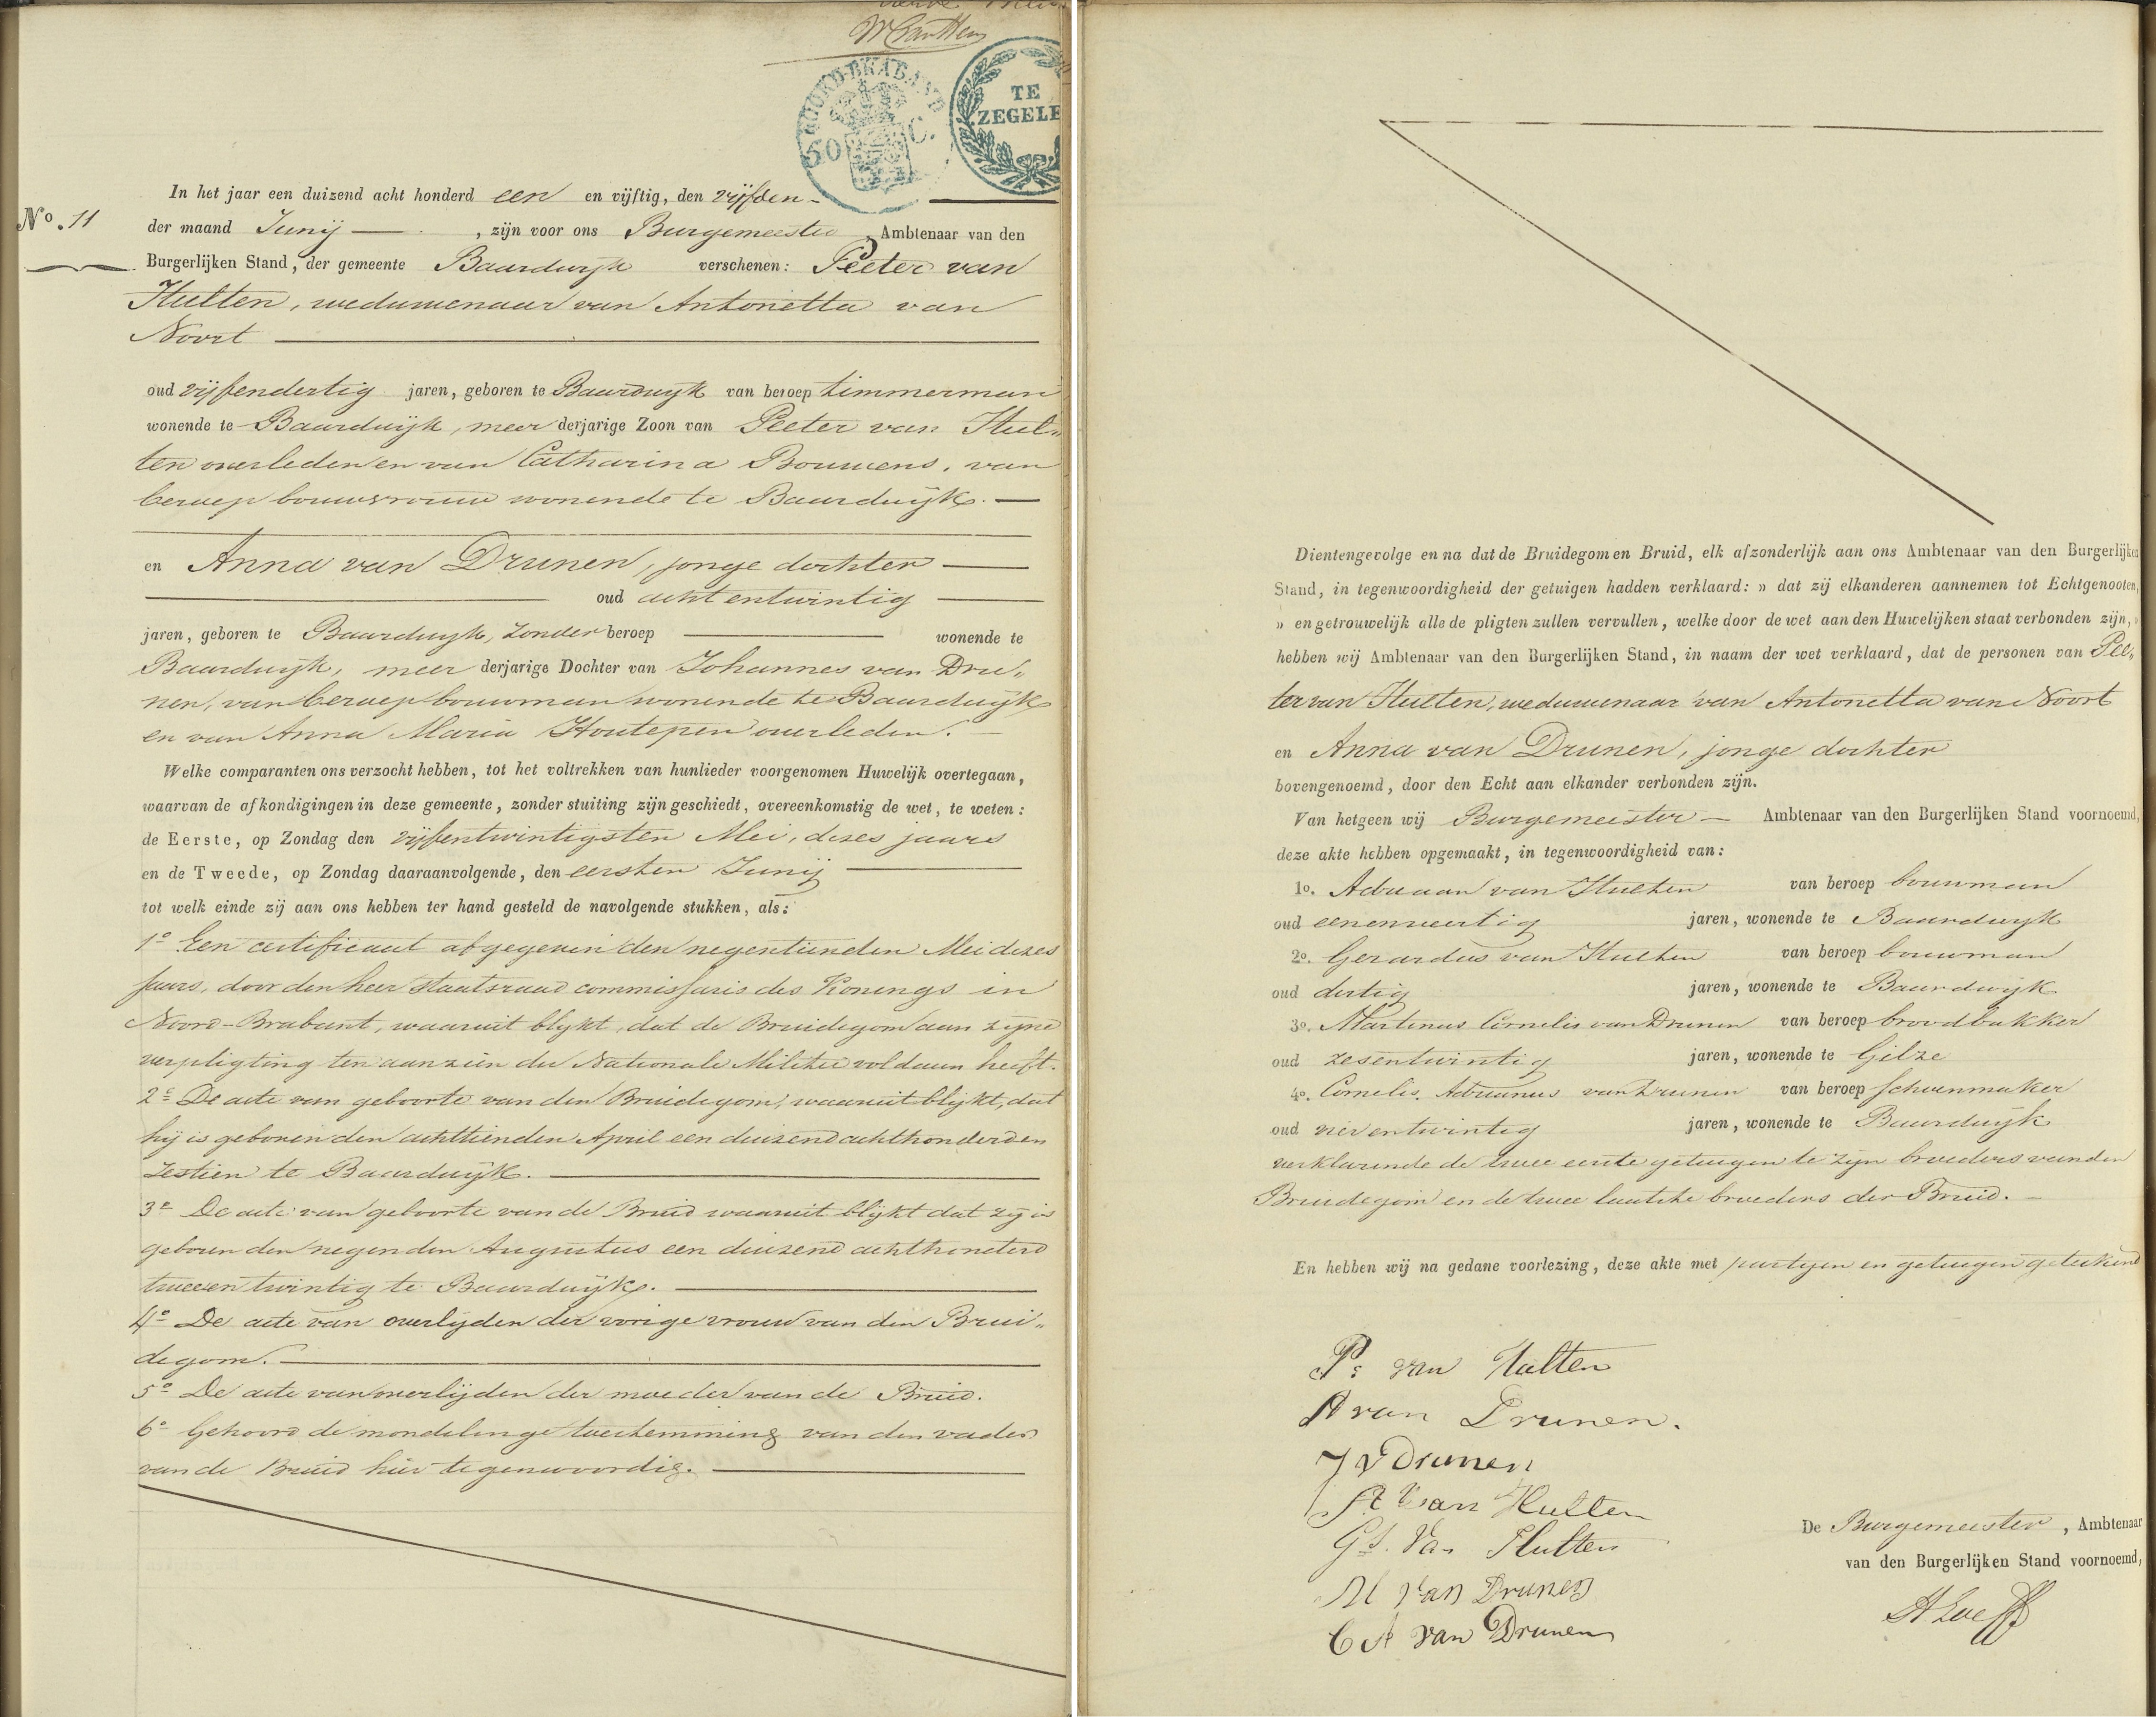 NOORD-BRABAND
50 C.
TE
ZEGELE
No. 11
In het jaar een duizend acht honderd een en vijftig, den vijfden
der maand Junij, zijn voor ons Burgemeester, Ambtenaar van den
Burgerlijken Stand, der gemeente Baardwijk verschenen: Peeter van
Hulten, weduwenaar van Antonetta van
Noort
oud vijfendertig jaren, geboren te Baardwijk van beroep timmerman
wonende te Baardwijk, meer derjarige Zoon van Peeter van Hul„
ten overleden en van Catharina Bouwens, van
beroep bouwvrouw wonende te Baardwijk.
en Anna van Drunen, jonge dochter
oud acht entwintig
jaren, geboren te Baardwijk, zonder beroep wonende te
Baardwijk, meer derjarige Dochter van Johannes van Dru„
nen, van beroep bouwman wonende te Baardwijk
en van Anna Maria Houtepen overleden.
Welke comparanten ons verzocht hebben, tot het voltrekken van hunlieder voorgenomen Huwelijk overtegaan,
waarvan de afkondigingen in deze gemeente, zonder stuiting zijn geschiedt, overeenkomstig de wet, te weten:
de Eerste, op Zondag den vijfentwintigsten Mei, dezes jaars
en de Tweede, op Zondag daaraanvolgende, den eersten Junij
tot welk einde zij aan ons hebben ter hand gesteld de navolgende stukken, als:
1o Een certificaat afgegeven den negentienden Mei dezes
jaars, door den heer Staatsraad commissaris des Konings in
Noord-Brabant, waaruit blijkt, dat de Bruidegom aan zijne
verpligting ten aanzien der Nationale Militie voldaan heeft.
2e De acte van geboorte van den Bruidegom, waaruit blijkt, dat
hij is geboren den achttienden April een duizend achthonderd en
zestien te Baardwijk.
3e De acte van geboorte van de Bruid waaruit blijkt dat zij is
geboren den negenden Augustus een duizend achthonderd
tweeen twintig te Baardwijk.
4o De acte van overlijden der vorige vrouw van den Brui„
degom.
5o De acte van overlijden der moeder van de Bruid.
6o Gehoord de mondelinge toestemming van den vader
van de Bruid hier tegenwoordig.
Dientengevolge en na dat de Bruidegom en Bruid, elk afzonderlijk aan ons Ambtenaar van den Burgerlijken
Stand, in tegenwoordigheid der getuigen hadden verklaard: » dat zij elkanderen aannemen tot Echtgenooten,
» en getrouwelijk alle de pligten zullen vervullen, welke door de wet aan den Huwelijken staat verbonden zijn, »
hebben wij Ambtenaar van den Burgerlijken Stand, in naam der wet verklaard, dat de personen van Pee„
ter van Hulten, weduwenaar van Antonetta van Noort
en Anna van Drunen, jonge dochter
bovengenoemd, door den Echt aan elkander verbonden zijn.
Van hetgeen wij Burgemeester Ambtenaar van den Burgerlijken Stand voornoemd,
deze akte hebben opgemaakt, in tegenwoordigheid van:
1o. Adriaan van Hulten van beroep bouwman
oud eenenveertig jaren, wonende te Baardwijk
2o. Gerardus van Hulten van beroep bouwman
oud dertig jaren, wonende te Baardwijk
3o. Martinus Cornelis van Drunen van beroep broodbakker
oud zesentwintig jaren, wonende te Gilze
4o. Cornelis Adrianus van Drunen van beroep schoenmaker
oud vierentwintig jaren, wonende te Baardwijk
verklarende de twee eerste getuigen te zijn broeders van den
Bruidegom en de twee laatste broeders der Bruid.
En hebben wij na gedane voorlezing, deze akte met partijen en getuigen geteekend
P: van Hulten
A van Drunen.
J v Drunen
A van Hulten
Gd. Van Hulten
M van Drunen
C A van Drunen
De Burgemeester, Ambtenaar
van den Burgerlijken Stand voornoemd,